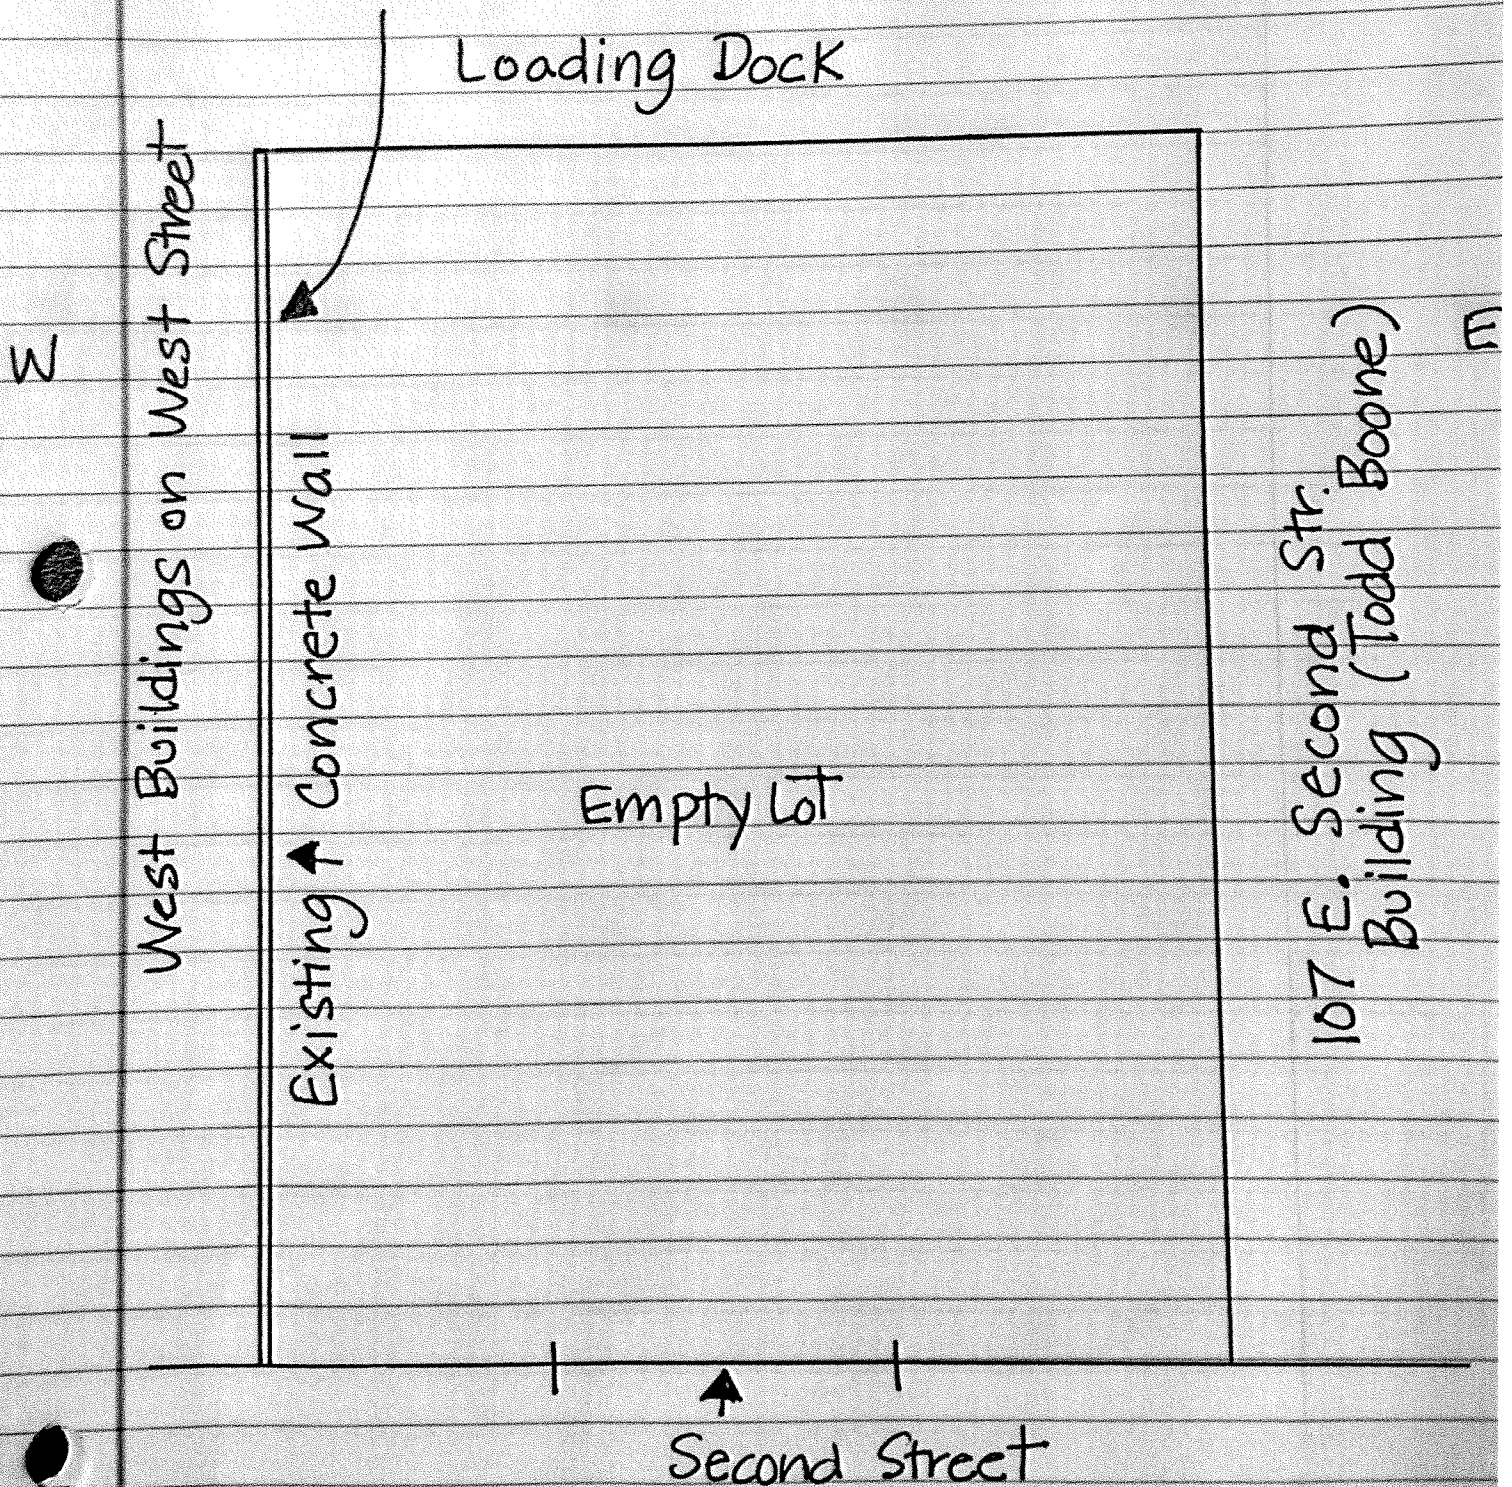 Loading Dock
W
West Buildings on West Street
Existing Concrete Wall
Empty Lot
107 E. Second Str.
Building (Todd Boone)
E
Second Street